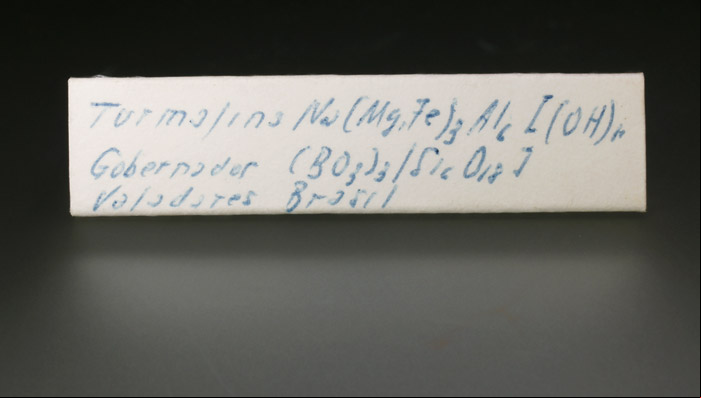 Turmalina Na(Mg,Fe)₃Al₆[(OH)ₙ
Gobernador (BO₃)₃/Si₆O₁₈]
Valadares Brasil